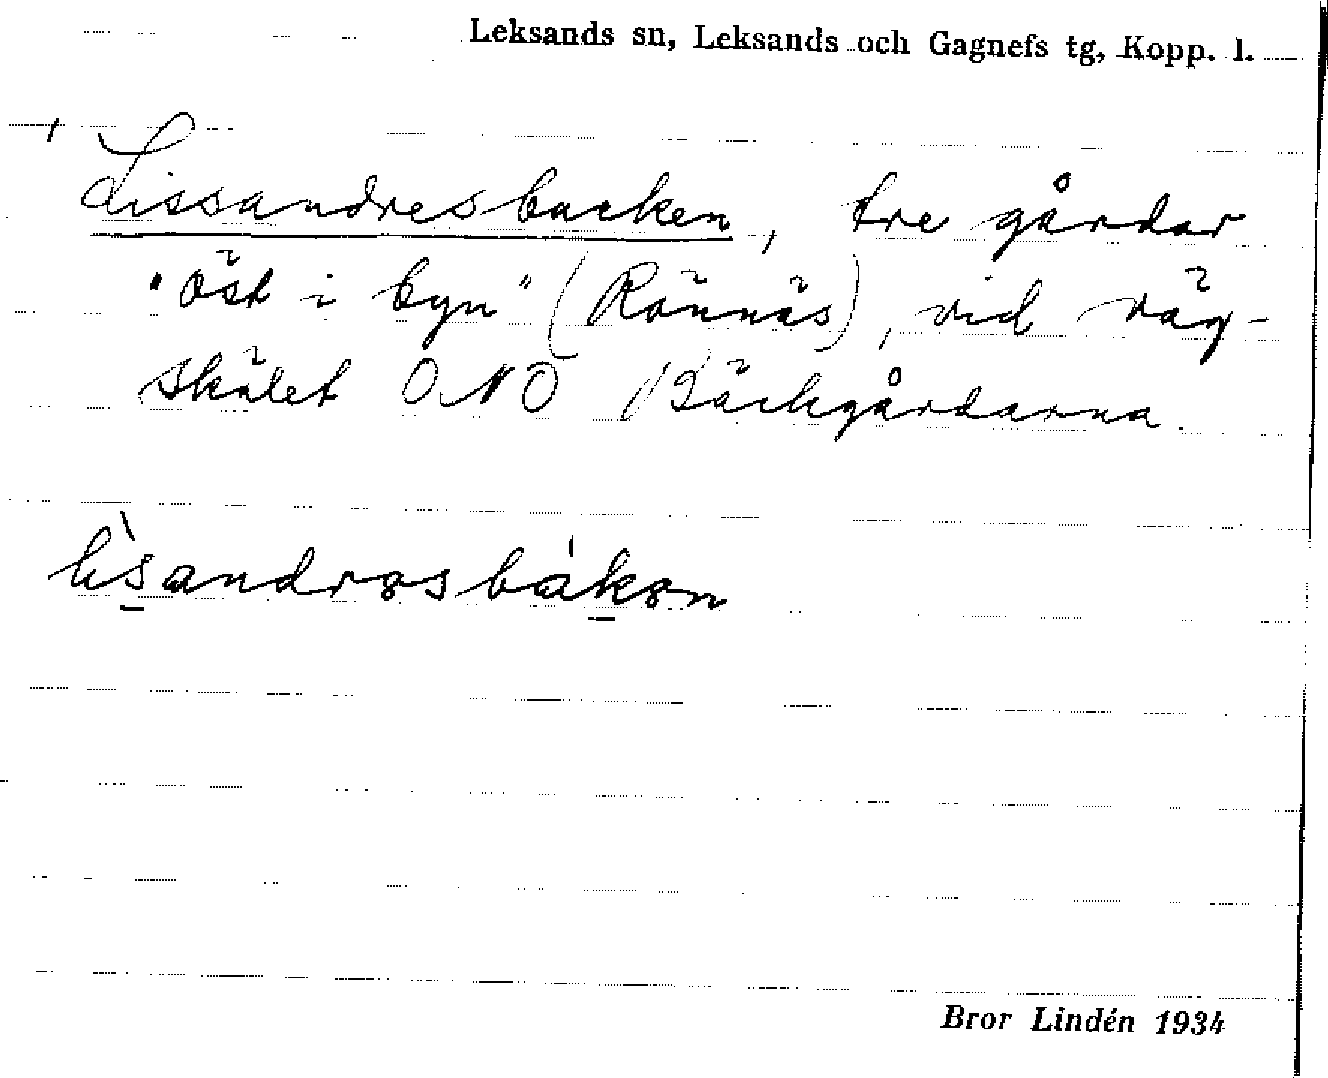 Leksands sn, Leksands och Gagnefs tg, Kopp. l.
Lissandresbacken, tre gårdar
"öst i byn" (Rönnäs), vid väg-
skälet ONO Bäckgårdarna.
lìsandrəsbákən
Bror Lindén 1934